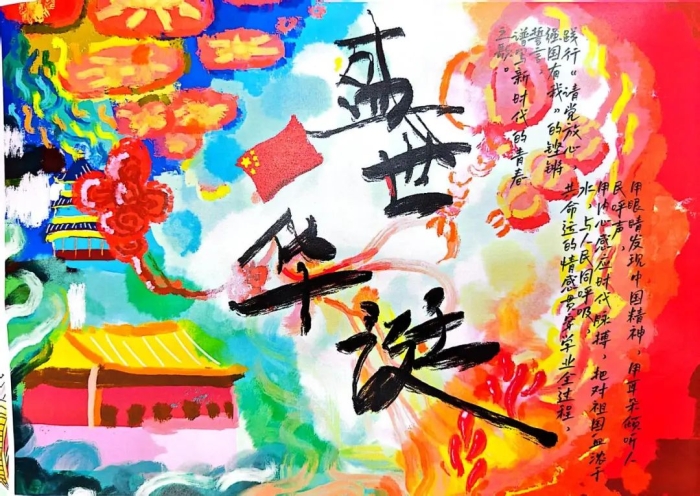 盛世
华诞
用眼睛发现中国精神,用耳朵倾听人
民呼声,
用内心感应时代脉搏,把对祖国血浓于
水、与人民同呼吸、
共命运的情感贯穿学业全过程,
践行“请党放心
强国有我”的铿锵
誓言,
谱写新时代的青春
之歌。